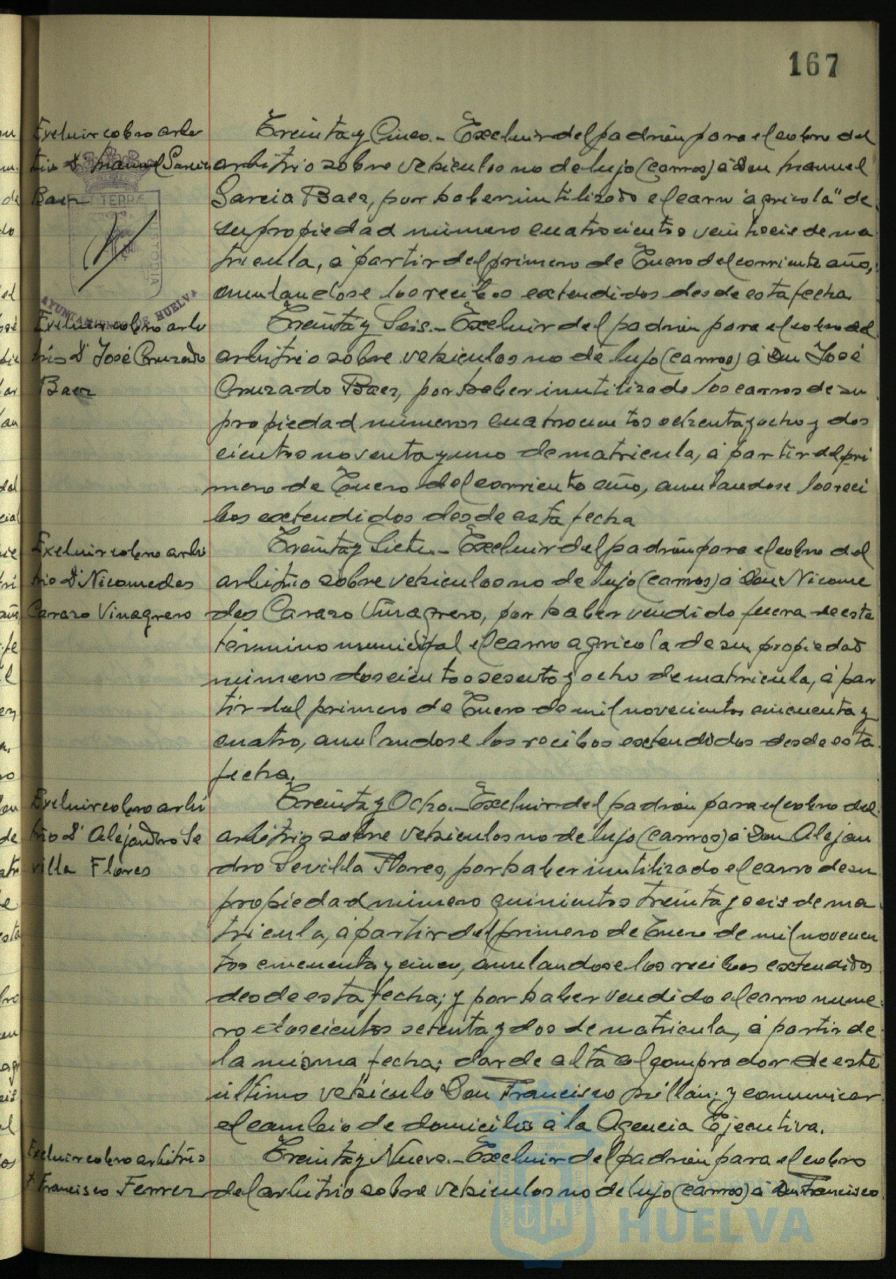 167
Excluir cobro arbi
trio Dn Manuel Garcia
Baez
Treinta y Cinco.- Excluir del padrón para el cobro del
arbitrio sobre vehiculos no de lujo (carros) á Don Manuel
Garcia Baez, por haber inutilizado el carro "agricola" de
su propiedad número cuatrocientos veintiseis de ma
tricula, á partir del primero de Enero del corriente año,
anulandose los recibos extendidos desde esta fecha
Excluir cobro arbi
trio Dn José Cruzado
Baez
Treinta y Seis.- Excluir del padrón para el cobro del
arbitrio sobre vehiculos no de lujo (carros) á Don José
Cruzado Baez, por haber inutilizado los carros de su
propiedad números cuatrocientos ochenta y ocho y dos
cientos noventa y uno de matricula, á partir del pri
mero de Enero del corriente año, anulandose los reci
bos extendidos desde esta fecha
Excluir cobro arbi
trio Dn Nicomedes
Carazo Vinagrero
Treinta y Siete.- Excluir del padrón para el cobro del
arbitrio sobre vehiculos no de lujo (carros) á Don Nicome
des Carazo Viñagrero, por haber vendido fuera de este
término municipal el carro agricola de su propiedad
número doscientos sesenta y ocho de matricula, á par
tir del primero de Enero de mil novecientos cincuenta y
cuatro, anulandose los recibos extendidos desde esta
fecha.
Excluir cobro arbi
trio Dn Alejandro Se
villa Flores
Treinta y Ocho.- Excluir del padrón para el cobro del
arbitrio sobre vehiculos no de lujo (carros) á Don Alejan
dro Sevilla Flores, por haber inutilizado el carro de su
propiedad número quinientos treinta y seis de ma
tricula, á partir del primero de Enero de mil novecien
tos cincuenta y cinco, anulandose los recibos extendidos
desde esta fecha; y por haber vendido el carro núme
ro doscientos setenta y dos de matricula, á partir de
la misma fecha; dar de alta al comprador de este
último vehiculo Don Francisco Millán; y comunicar
el cambio de domicilio á la Agencia Ejecutiva.
Excluir cobro arbitrio
Dn Francisco Ferrer
Treinta y Nueve.- Excluir del padrón para el cobro
del arbitrio sobre vehiculos no de lujo (carros) á Don Francisco
HUELVA